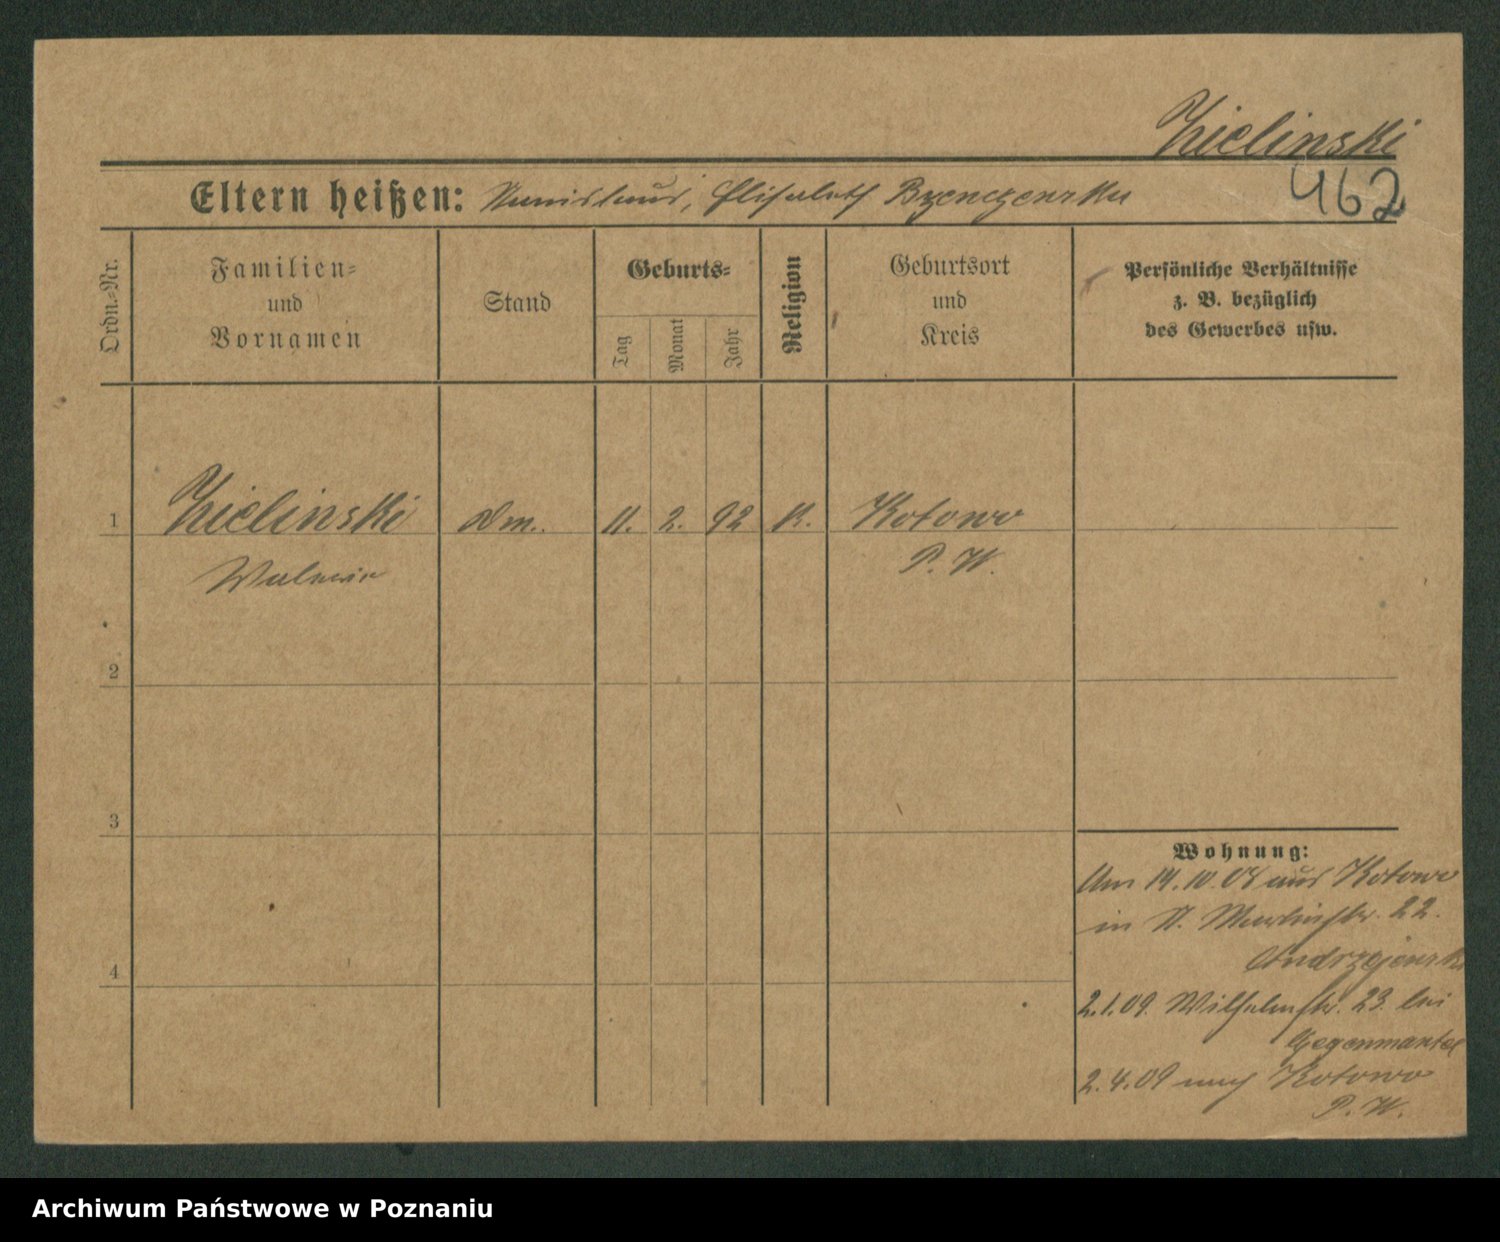 Zielinski
462
Eltern heißen: Stanislaus, Elisabeth
Ordn.=Nr.
Familien=
und
Vornamen
Stand
Geburts=
Tag
Monat
Jahr
Religion
Geburtsort
und
Kreis
Persönliche Verhältnisse
z. B. bezüglich
des Gewerbes usw.
1 Zielinski 11. 2. 92 K. Kotowo
P. W.
2
3
4
Wohnung:
Am 14.10.08 aus Kotowo
in St. Martinstr. 22.
Andrzejewski
2.1.09. Wilhelmstr. 23. bei
Gegenmantel
2.4.09 nach Kotowo
P. W.
Archiwum Państwowe w Poznaniu